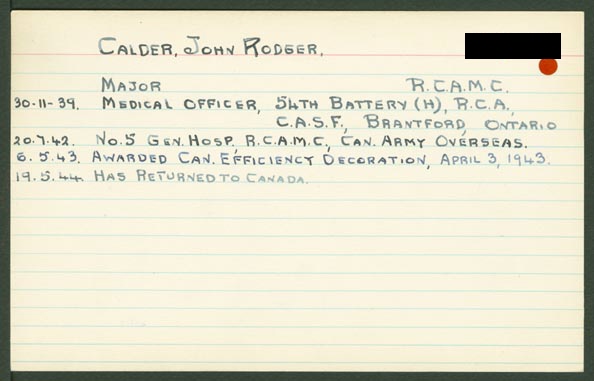 CALDER, JOHN RODGER.
MAJOR R.C.A.M.C.
30-11-39. MEDICAL OFFICER, 54TH BATTERY (H), R.C.A.,
C.A.S.F., BRANTFORD, ONTARIO
20.7.42. NO.5 GEN. HOSP. R.C.A.M.C., CAN. ARMY OVERSEAS.
6.5.43. AWARDED CAN. EFFICIENCY DECORATION, APRIL 3, 1943.
19.5.44. HAS RETURNED TO CANADA.